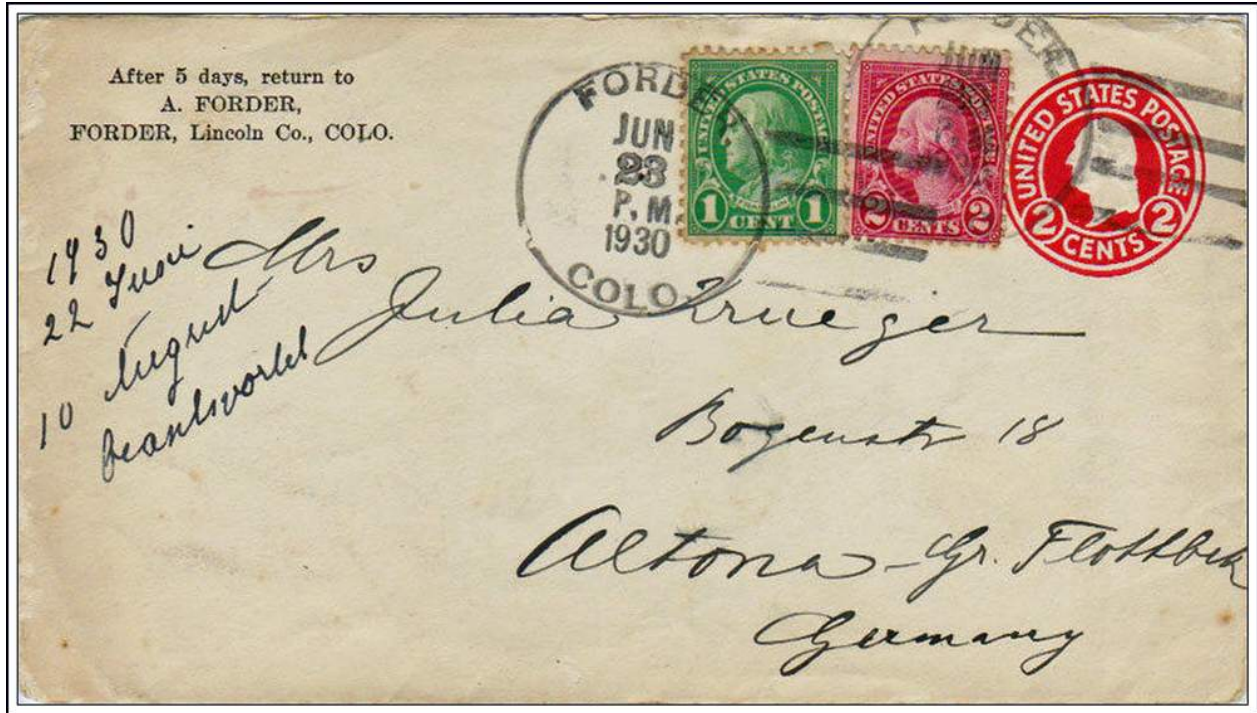 After 5 days, return to
A. FORDER,
FORDER, Lincoln Co., COLO.
FORDER
JUN
23
P. M.
1930
COLO.
UNITED STATES POSTAGE
1 CENT 1
UNITED STATES POSTAGE
2 CENTS 2
FORDER
JUN
UNITED STATES POSTAGE
2 CENTS 2
1930
22 Juni
10 August
beantwortet
Mrs
Julia Krueger
Bogenstr 18
Altona - Gr. Flottbek
Germany